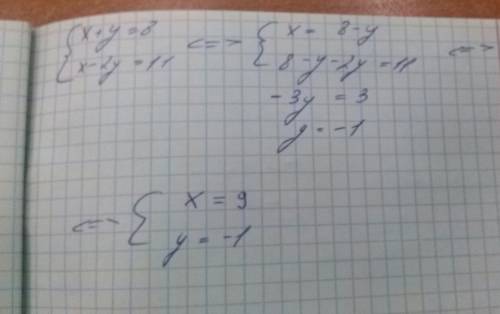 { x+y=8
x-2y=11 <=> { x= 8-y
8-y-2y =11 <=>
-3y = 3
y = -1
<=> { x = 9
y = -1